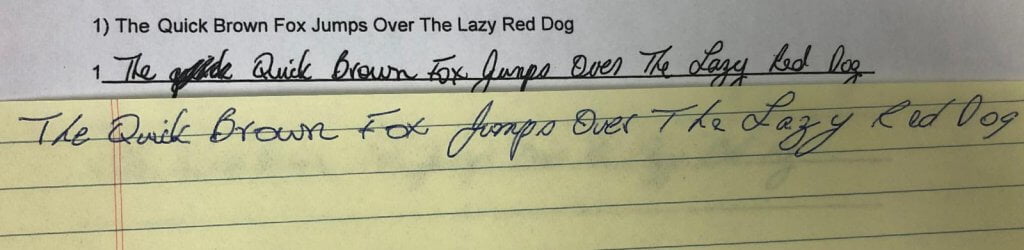 1) The Quick Brown Fox Jumps Over The Lazy Red Dog
1 The Quick Brown Fox Jumps Over The Lazy Red Dog
The Quick Brown Fox Jumps Over The Lazy Red Dog